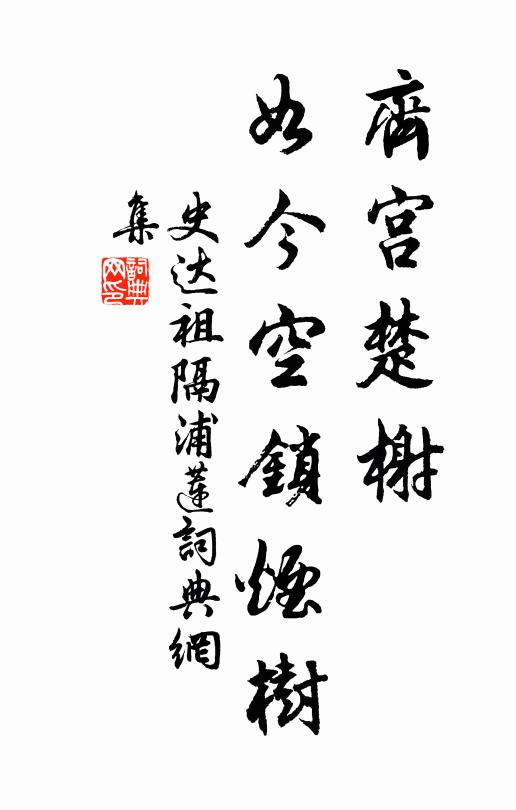 齊宮楚榭
如今空鎖煙樹
史达祖隔浦蓮詞典網
集
詞典
网印